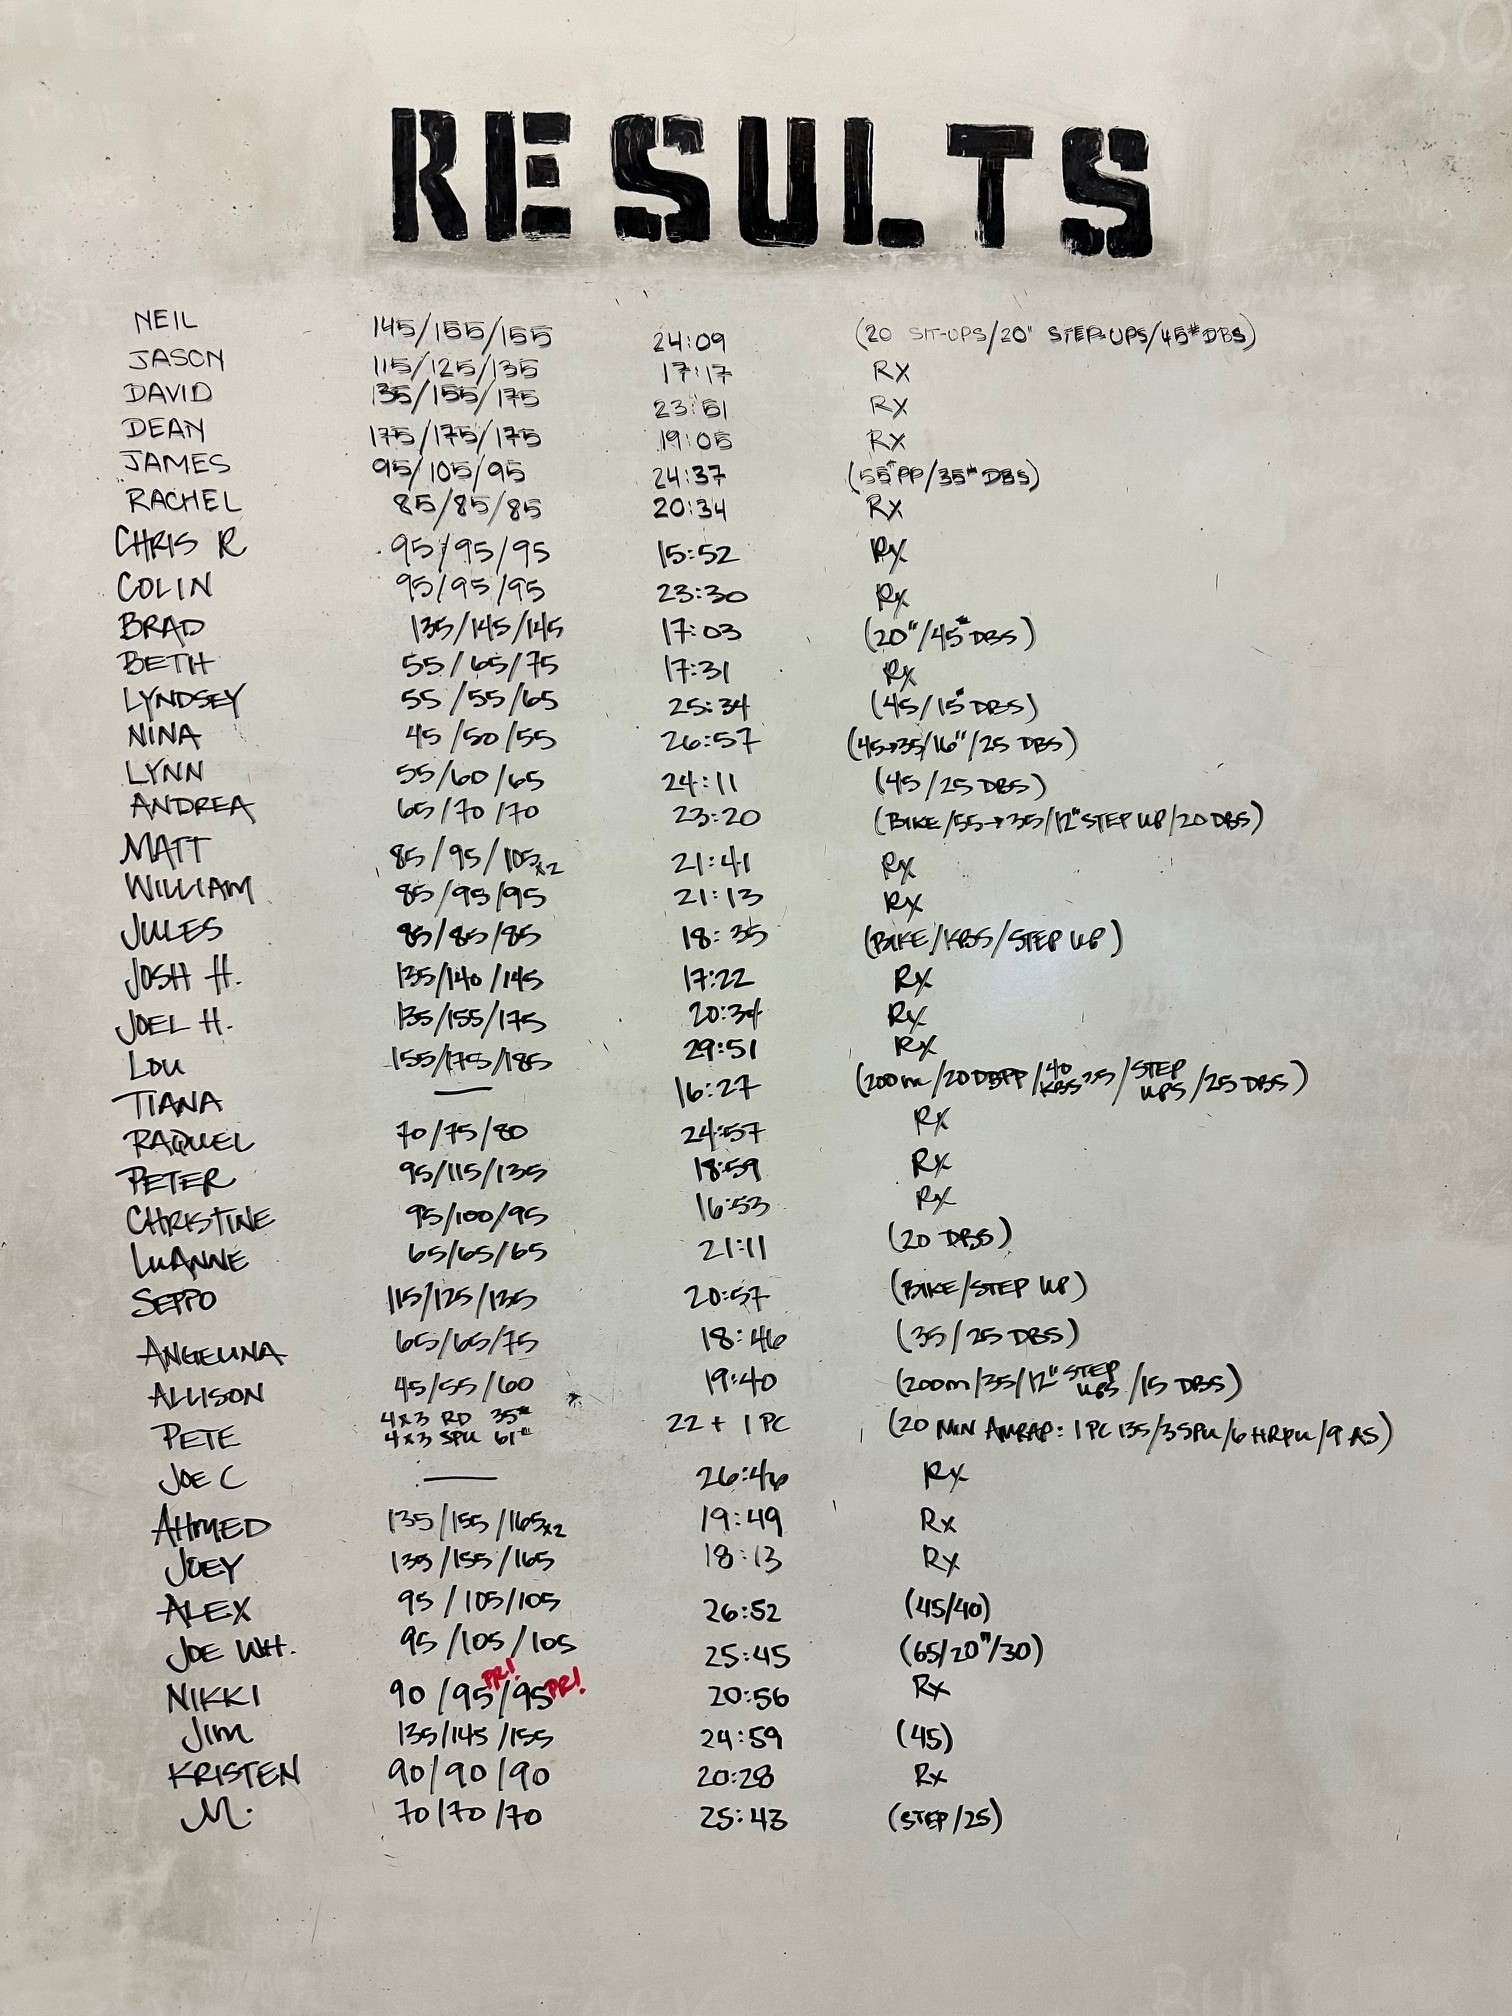 RESULTS
NEIL 145/155/155 24:09 (20 SIT-UPS/20" STEP-UPS/45# DBS)
JASON 115/125/135 17:17 RX
DAVID 135/155/175 23:51 RX
DEAN 175/175/175 19:05 RX
JAMES 95/105/95 24:37 (55# PP/35# DBS)
RACHEL 85/85/85 20:34 RX
CHRIS R 95/95/95 15:52 Rx
COLIN 95/95/95 23:30 Rx
BRAD 135/145/145 17:03 (20"/45# DBS)
BETH 55/65/75 17:31 Rx
LYNDSEY 55/55/65 25:34 (45/15# DBS)
NINA 45/50/55 26:57 (45→35/16"/25 DBS)
LYNN 55/60/65 24:11 (45/25 DBS)
ANDREA 65/70/70 23:20 (BIKE/55→35/12" STEP UP/20 DBS)
MATT 85/95/105x2 21:41 Rx
WILLIAM 85/95/95 21:13 Rx
JULES 85/85/85 18:35 (BIKE/KBS/STEP UP)
JOSH H. 135/140/145 17:22 Rx
JOEL H. 135/155/175 20:34 Rx
LOU 155/175/185 29:51 Rx
TIANA — 16:27 (200m/20 DBPP/40 KBS 25/STEP UPS/25 DBS)
RAQUEL 70/75/80 24:57 Rx
PETER 95/115/135 18:59 Rx
CHRISTINE 95/100/95 16:53 Rx
LUANNE 65/65/65 21:11 (20 DBS)
SEPPO 115/125/135 20:57 (BIKE/STEP UP)
ANGELINA 65/65/75 18:46 (35/25 DBS)
ALLISON 45/55/60 19:40 (200m/35/12" STEP UPS/15 DBS)
PETE 4x3 RD 35# 4x3 SPU 61# 22 + 1 PC (20 MIN AMRAP: 1 PC 135/3 SPU/6 HRPU/9 AS)
JOE C — 26:46 Rx
AHMED 135/155/165x2 19:49 Rx
JOEY 135/155/165 18:13 Rx
ALEX 95/105/105 26:52 (45/40)
JOE WH. 95/105/105 25:45 (65/20"/30)
NIKKI 90/95 PR!/95 PR! 20:56 Rx
JIM 135/145/155 24:59 (45)
KRISTEN 90/90/90 20:28 Rx
M. 70/70/70 25:43 (STEP/25)